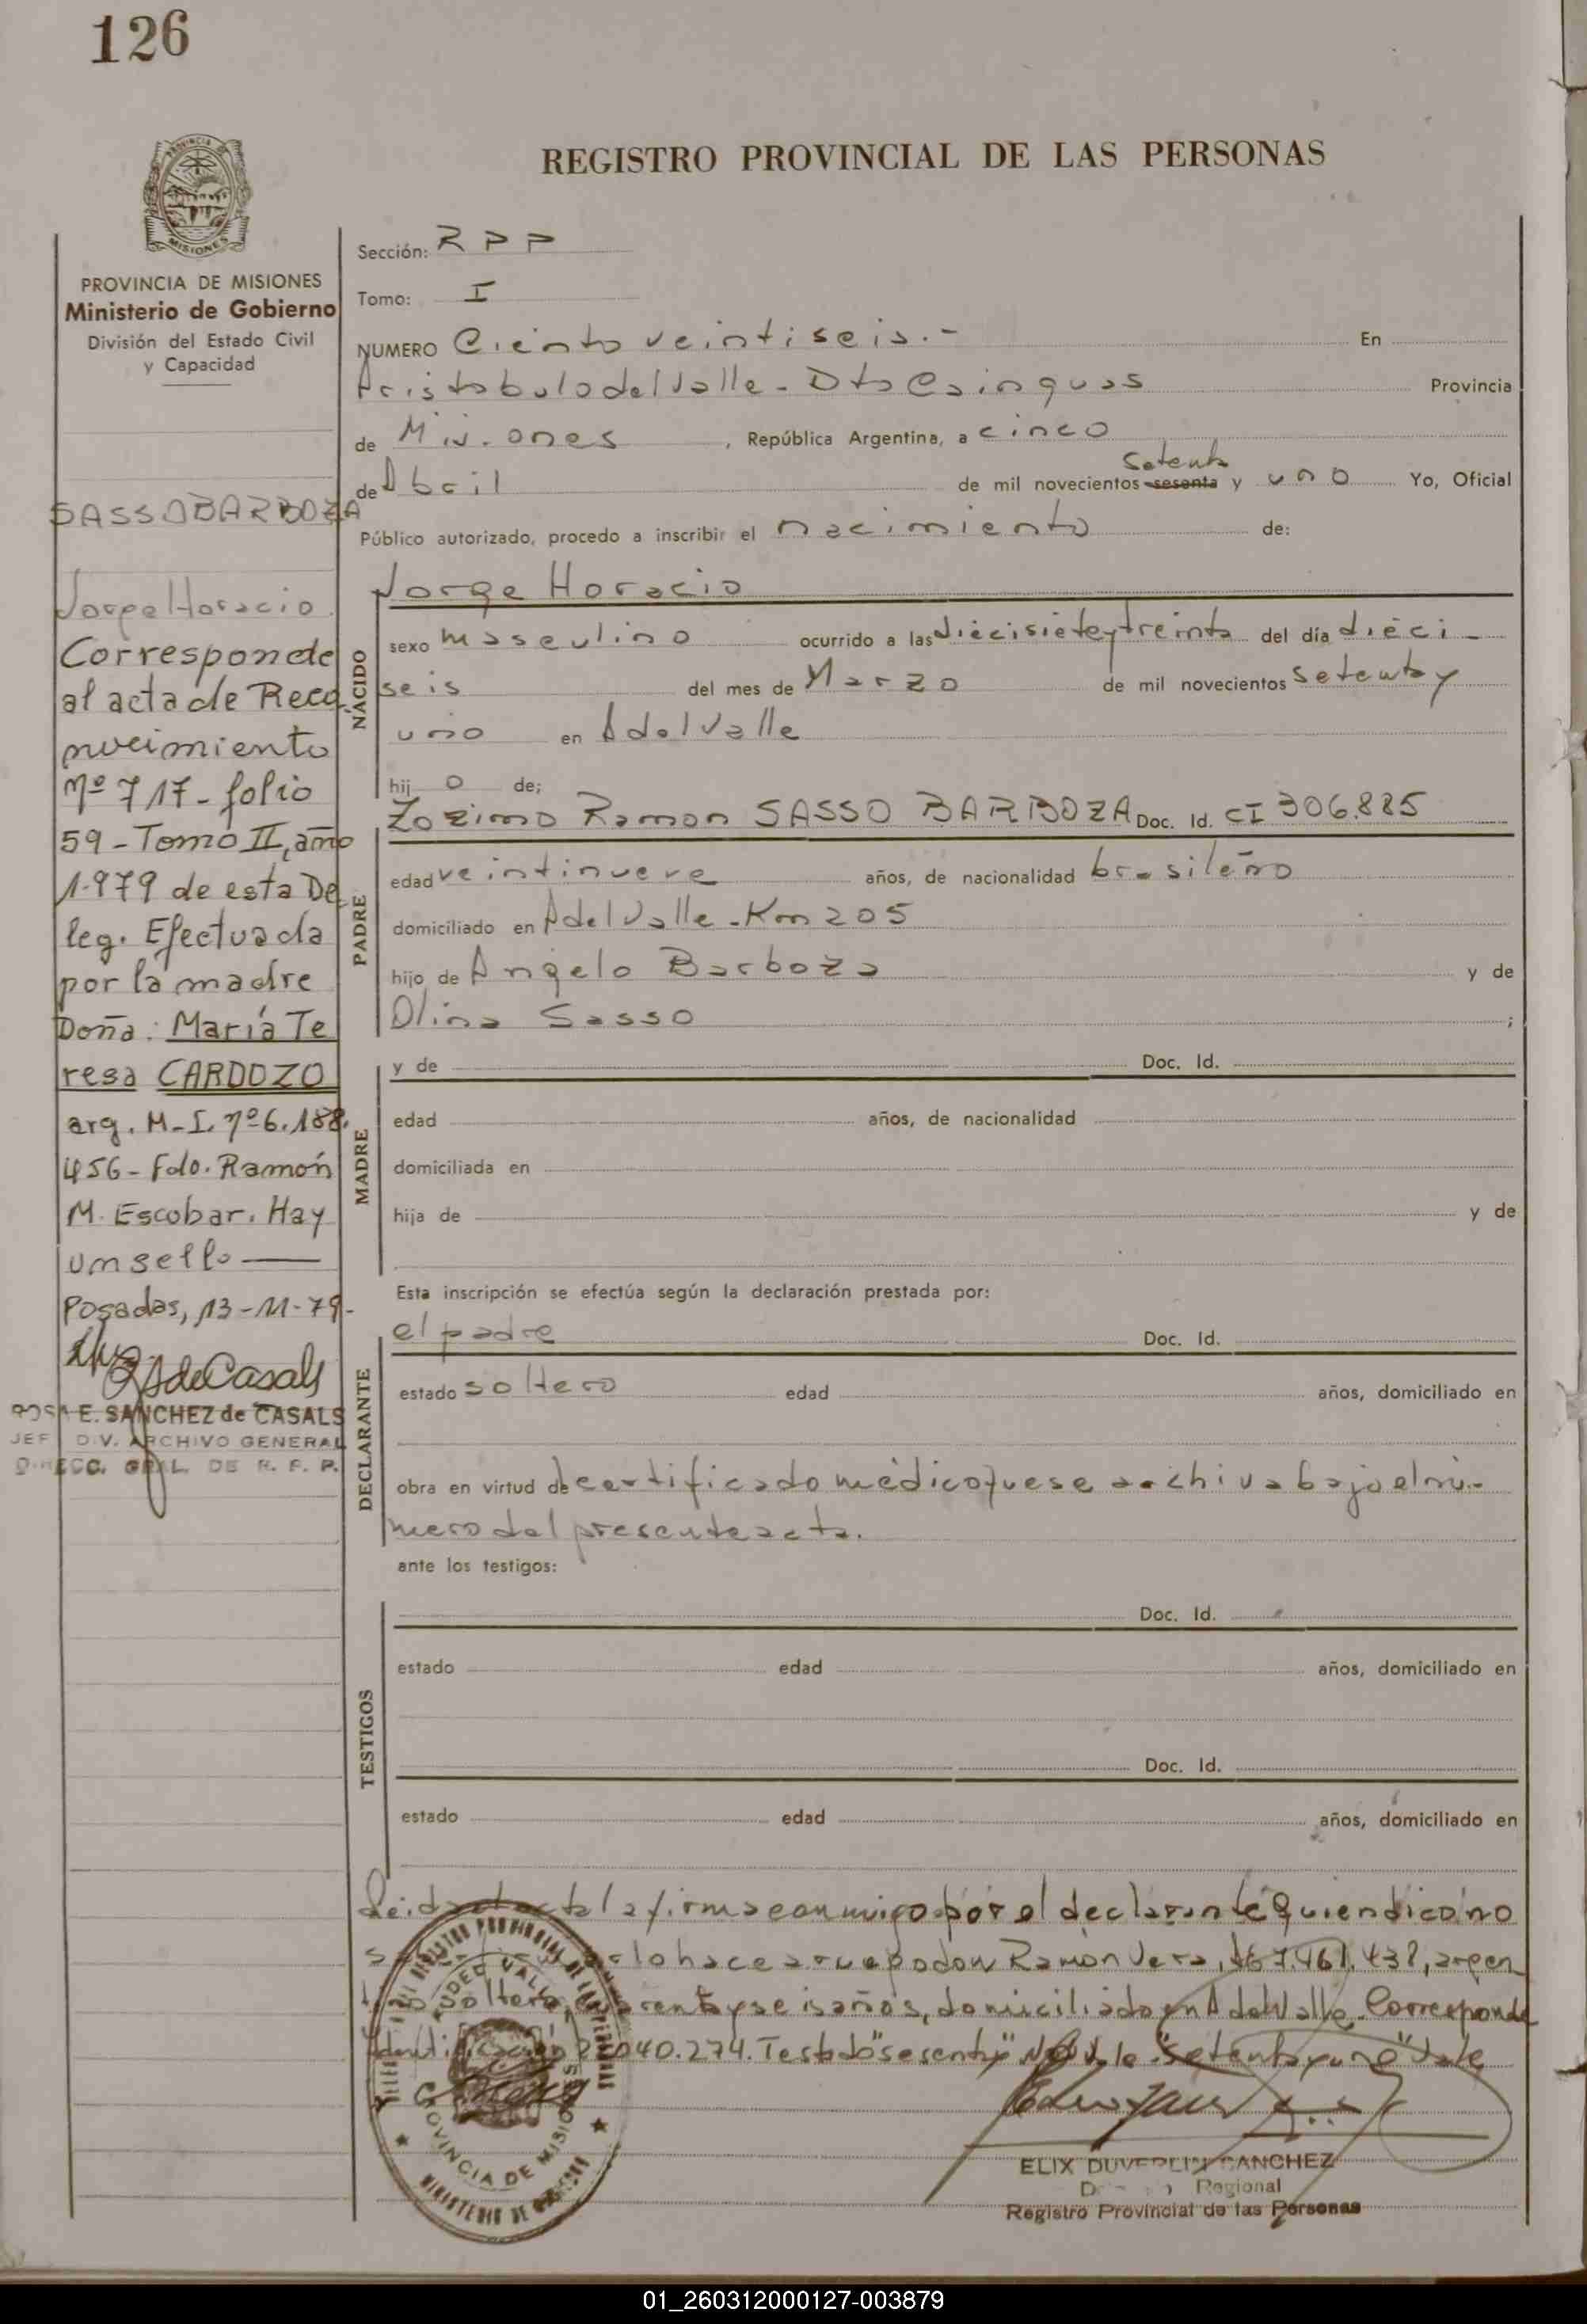 126
REGISTRO PROVINCIAL DE LAS PERSONAS
PROVINCIA DE MISIONES
Ministerio de Gobierno
División del Estado Civil
y Capacidad
SASSO BARBOZA
Jorge Horacio
Corresponde
al acta de Reco
nocimiento
Nº 717 - folio
59 - Tomo II, año
1.979 de esta De
leg. Efectuada
por la madre
Doña: María Te
resa CARDOZO
arg. M-I. Nº 6.188.
456 - Fdo. Ramón
M. Escobar. Hay
un sello
Posadas, 13-11-79-
ROSA E. SANCHEZ de CASALS
JEF DIV. ARCHIVO GENERAL
DIRECC. GRAL. DE R. P. P.
Sección: R P P
Tomo: I
NUMERO Ciento veintiseis.- En
Aristobulo del Valle - Dto Cainguas Provincia
de Misiones, República Argentina, a cinco
setenta
de Abril de mil novecientos sesenta y uno Yo, Oficial
Público autorizado, procedo a inscribir el nacimiento de:
NACIDO
Jorge Horacio
sexo masculino ocurrido a las diecisiete y treinta del día dieci-
seis del mes de Marzo de mil novecientos setenta y
uno en A del Valle
hij o de;
PADRE
Zozimo Ramon SASSO BARBOZA Doc. Id. CI 306.885
edad veintinueve años, de nacionalidad brasileño
domiciliado en A del Valle - Km 205
hijo de Angelo Barboza y de
Olina Sasso ;
MADRE
y de Doc. Id.
edad años, de nacionalidad
domiciliada en
hija de y de
Esta inscripción se efectúa según la declaración prestada por:
DECLARANTE
el padre Doc. Id.
estado soltero edad años, domiciliado en
obra en virtud de certificado médico que se archiva bajo el nú-
mero del presente acta.
ante los testigos:
TESTIGOS
Doc. Id.
estado edad años, domiciliado en
Doc. Id.
estado edad años, domiciliado en
Leida el acta la firma conmigo por el declarante quien dice no
lo hace a ruego don Ramón Vera, 7.461.438, argen
soltero, cuarenta y seis años, domiciliado en A del Valle. Corresponde
040.274. Testado "sesenta" No vale. "Setenta y uno" Vale
PROVINCIA DE MISIONES
ELIX DUVERLIN SANCHEZ
Regional
Registro Provincial de las Personas
01_260312000127-003879